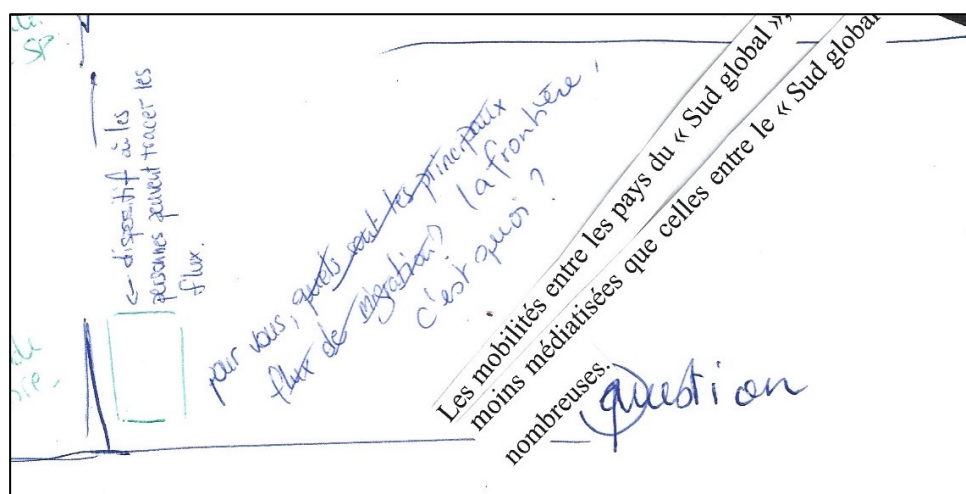 ← dispositif où les
personnes peuvent tracer les
flux.
pour vous, quels sont les principaux
flux de migration? la frontière,
c'est quoi ?
Les mobilités entre les pays du « Sud global »,
moins médiatisées que celles entre le « Sud global
nombreuses.
question